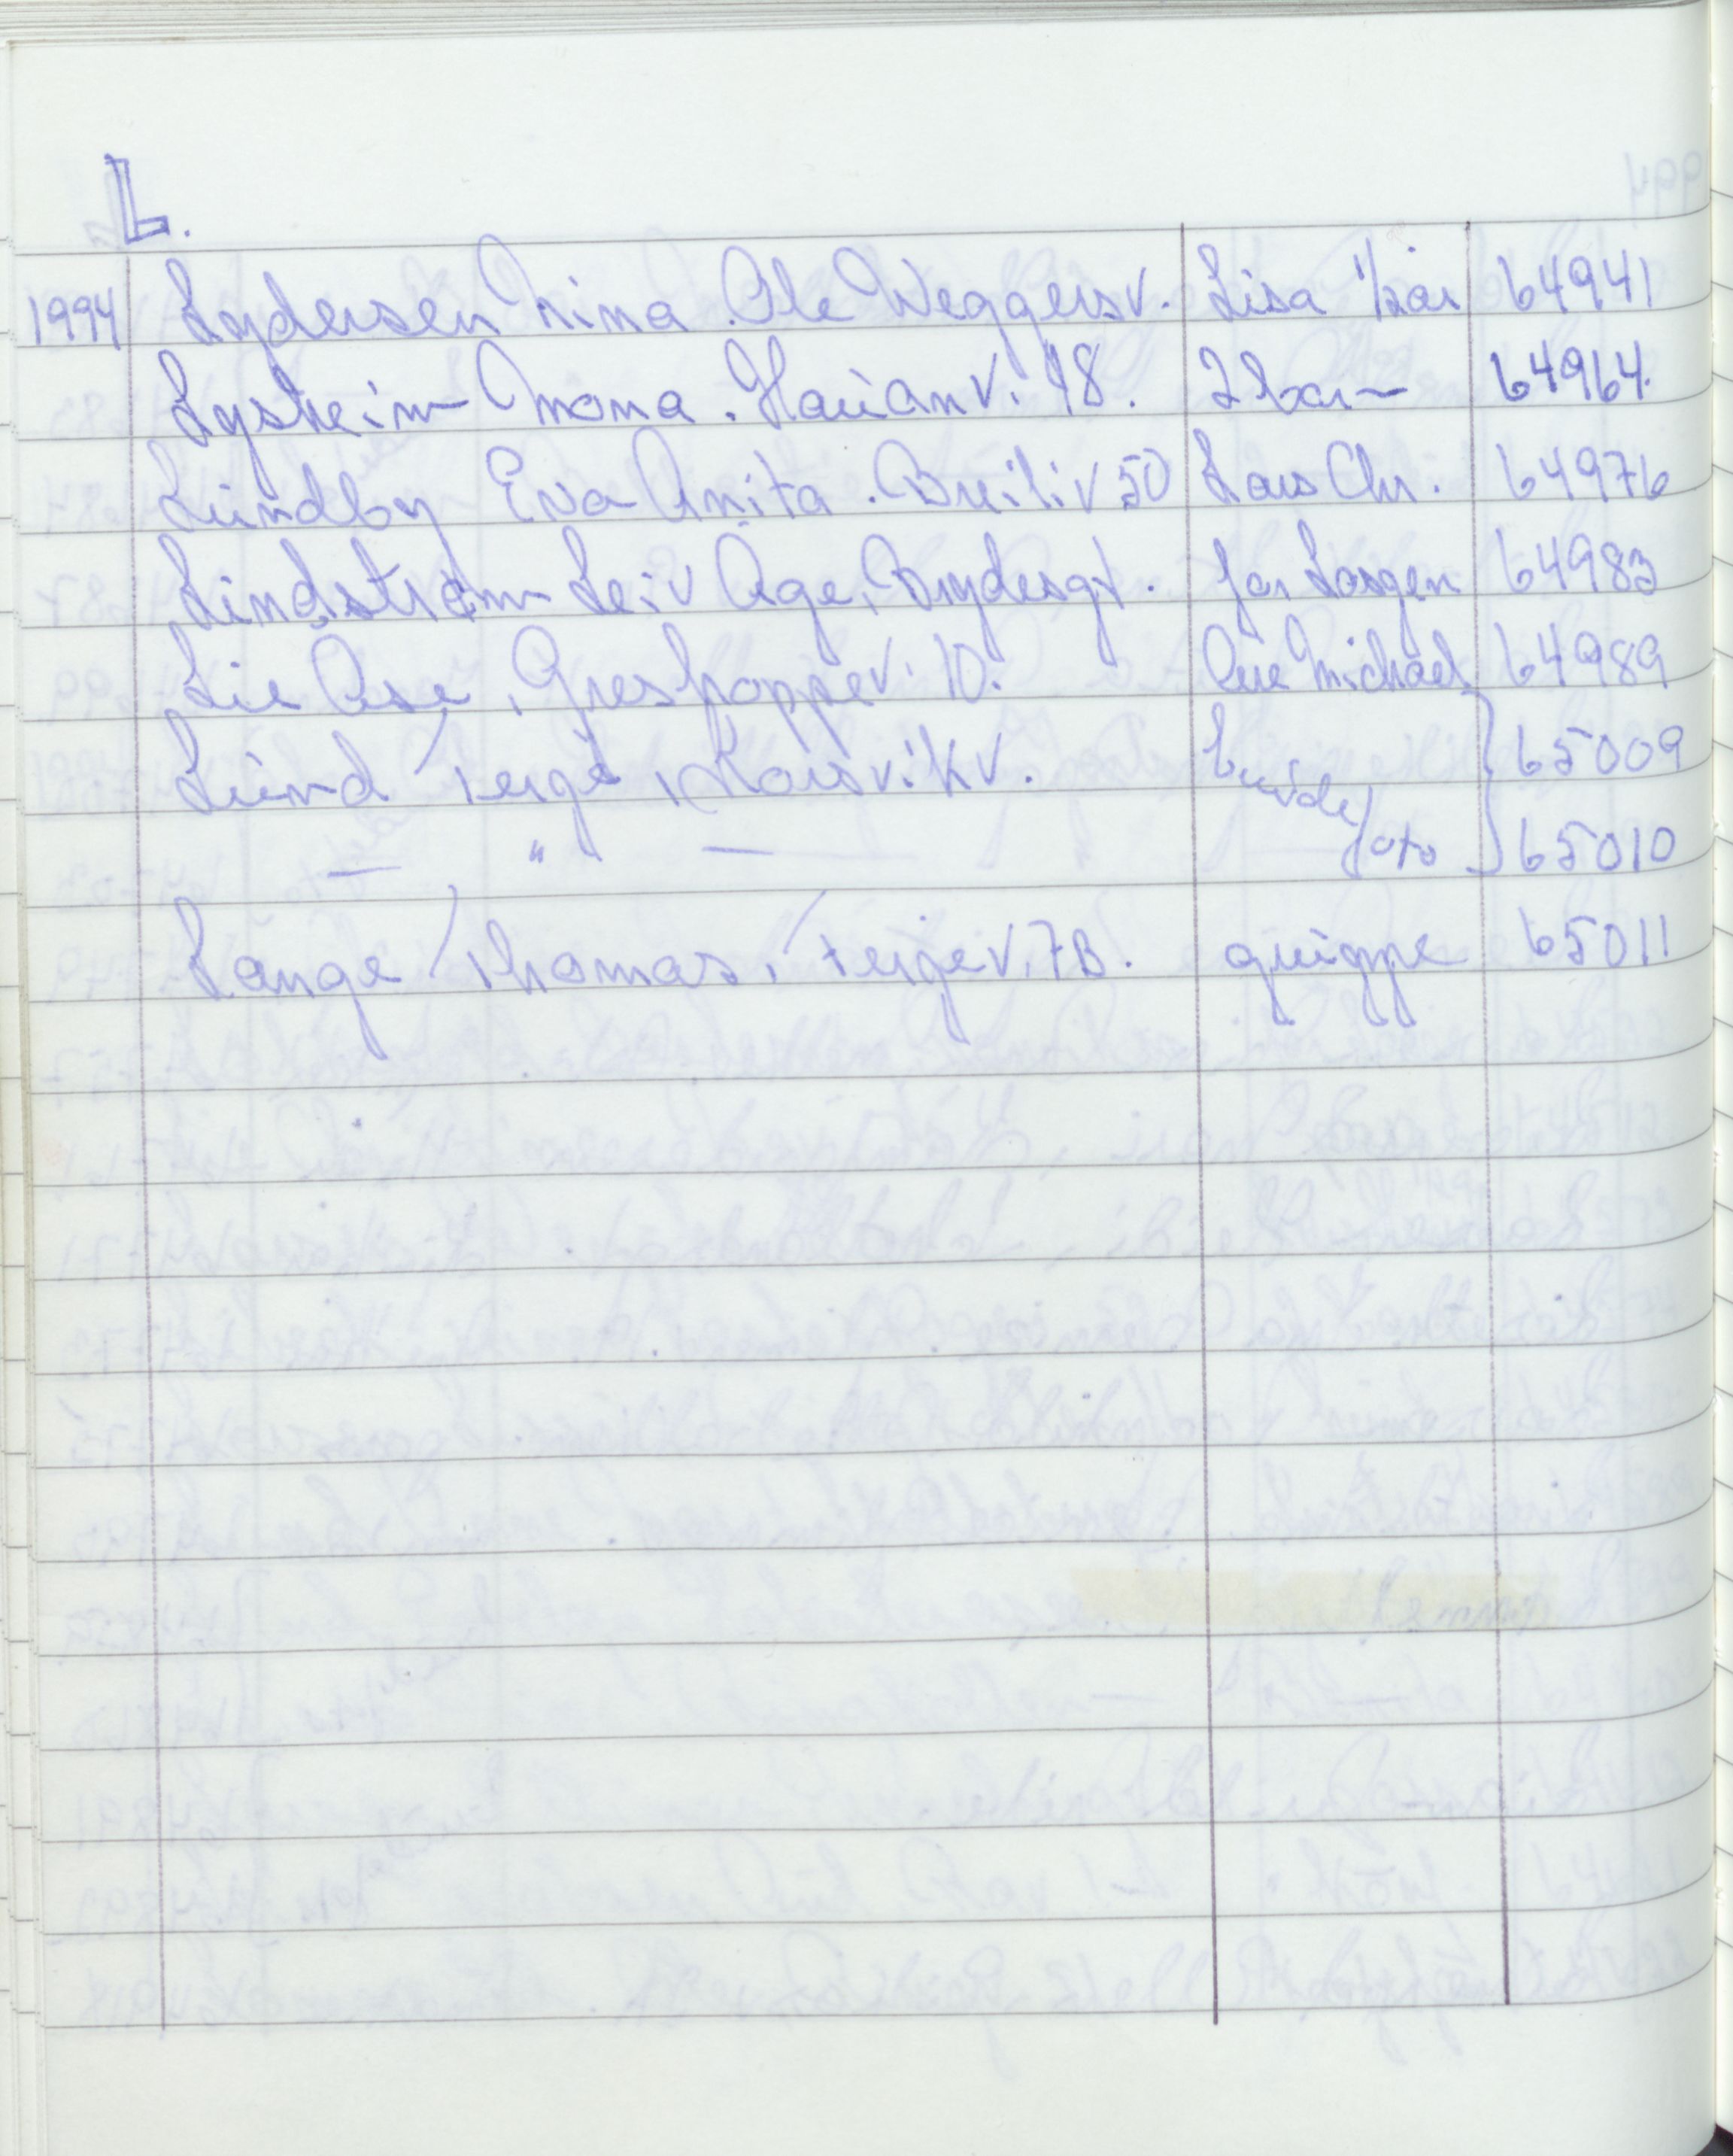 L.
1994 Lydersen Nina. Ole Weggersv. Lisa 1/2 år 64941
Lystheim Mona. Hauanv. 18. 2 barn 64964.
Lundby Eva Anita. Breiliv 50 Lars Chr. 64976
Lindstrøm Leiv Åge, Brydesgt. for Lasgen 64983
Lie Åse, Greshoppev. 10. Ove Michael 64989
Lund Terje, Korsvikv. brude 65009
— " — foto 65010
Lange Thomas, Terjev. 7B. gruppe 65011